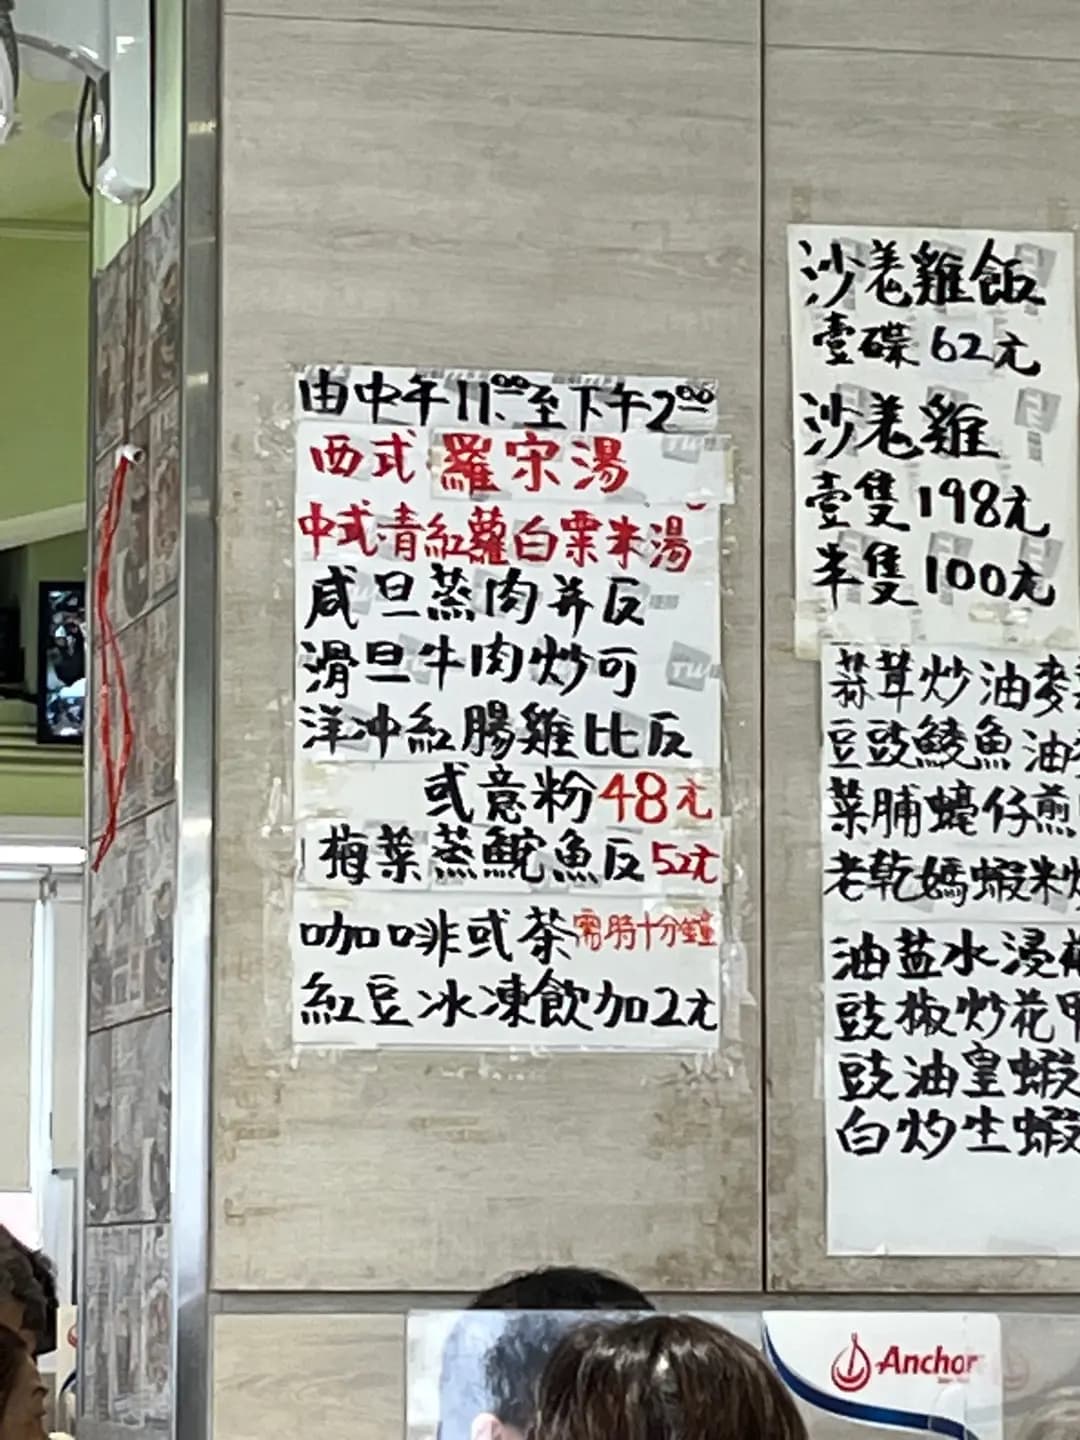 由中午11:00至下午2:00
西式羅宋湯
中式青紅蘿白粟米湯
咸旦蒸肉并反
滑旦牛肉炒可
洋沖紅腸雞比反
或意粉48元
梅菜蒸鯇魚反52元
咖啡或茶需時十分鐘
紅豆冰凍飲加2元
沙羌雞飯
壹碟62元
沙羌雞
壹隻198元
半隻100元
蒜茸炒油麥
豆豉鯪魚油
菜脯蠔仔煎
老乾媽蝦米炒
油盐水浸
豉椒炒花甲
豉油皇蝦
白灼生蝦
Anchor